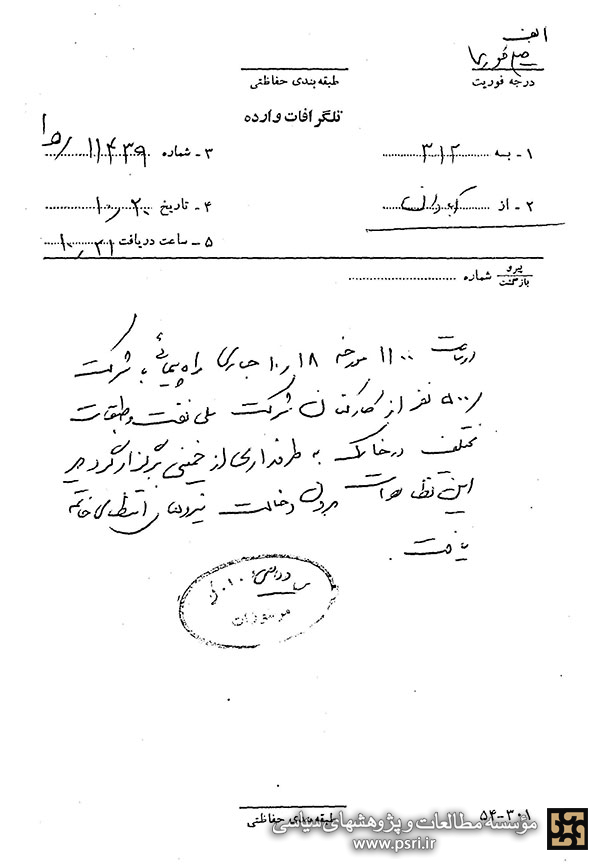 الف
خیلی فوری
درجه فوریت
طبقه‌بندی حفاظتی
تلگرافات وارده
۱ - به ۳۱۲
۳ - شماره ۱۱۴۳۹
۲ - از آبادان
۴ - تاریخ ۱۰٫۲۰
۵ - ساعت دریافت ۱۰٫۲۱
پیرو
بازگشت
شماره
درساعت ۱۱۰۰ مورخه ۱۰٫۱۸ جاری راه پیمائی با شرکت
۵۰۰ نفر از کارکنان شرکت ملی نفت و طبقات
مختلف در خارک به طرفداری از خمینی برگزار گردید
این تظاهرات بدون دخالت نیروهای انتظامی خاتمه
یافت.
طبقه‌بندی حفاظتی
۵۴-۳۰۱
مؤسسه مطالعات و پژوهشهای سیاسی
www.psri.ir